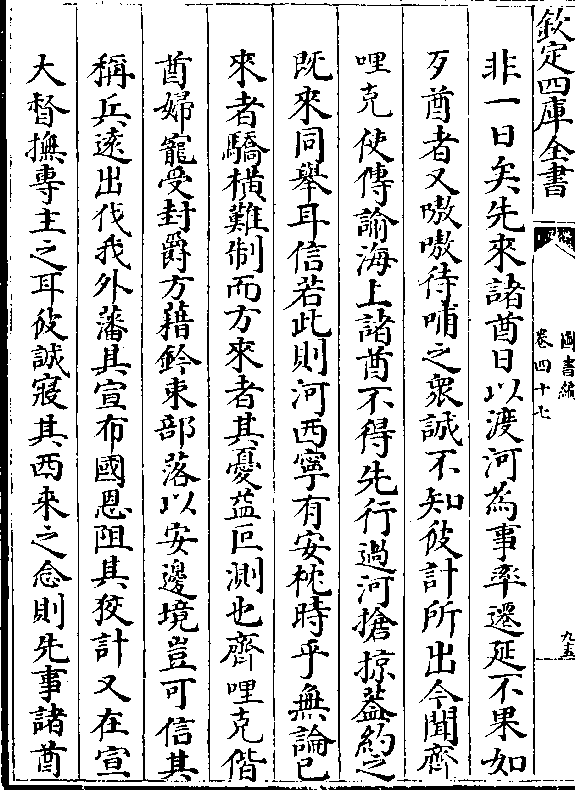 欽定四庫全書
圖書編
卷四十七
九五
非一日矣先來諸酋日以渡河為事率遷延不果如
歹酋者又嗷嗷待哺之衆誠不知彼計所出今聞齊
哩克使傳諭海上諸酋不得先行過河搶掠葢約之
既來同舉耳信若此則河西寧有安枕時乎無論已
來者驕橫難制而方來者其憂葢叵測也齊哩克偕
酋婦寵受封爵方藉鈐束部落以安邊境豈可信其
稱兵遠出伐我外藩其宣布國恩阻其狡計又在宣
大督撫專主之耳彼誠寢其西來之念則先事諸酋